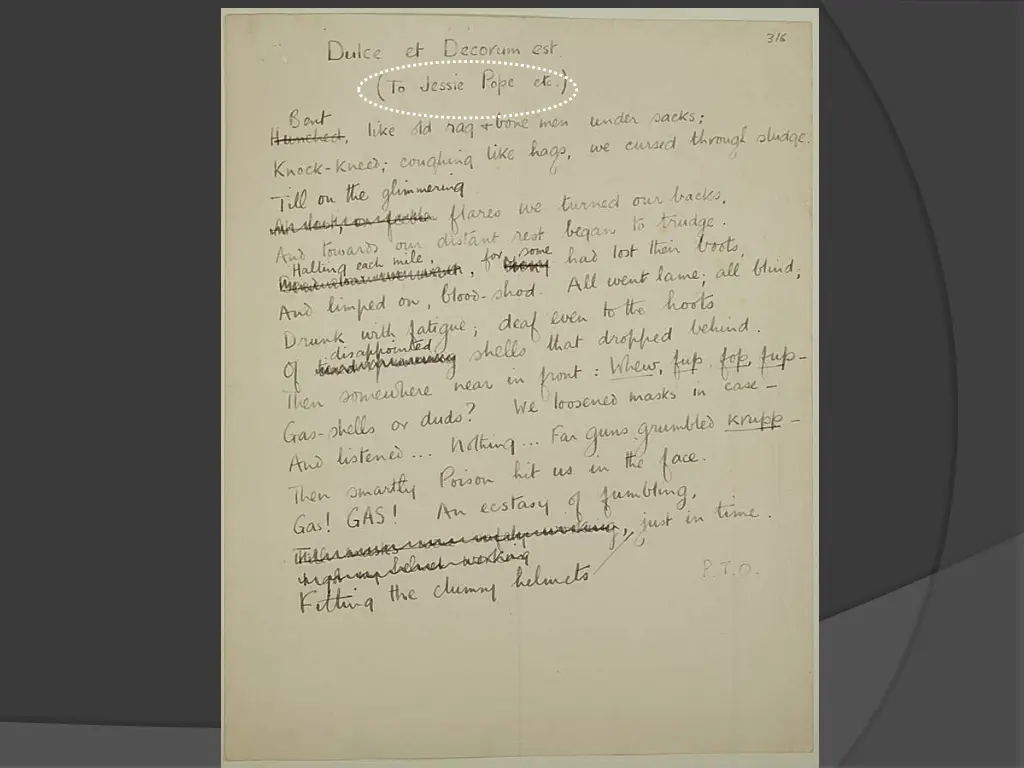 316
Dulce et Decorum est.
(To Jessie Pope etc.)
Bent
Hunched, like old rag + bone men under sacks;
Knock-kneed; coughing like hags, we cursed through sludge.
Till on the glimmering
flares we turned our backs,
And towards our distant rest began to trudge.
Halting each mile, some
, for Many had lost their boots,
And limped on, blood-shod. All went lame; all blind;
Drunk with fatigue; deaf even to the hoots
disappointed
Of shells that dropped behind.
Then somewhere near in front: Whew, fup, fop, fup-
Gas-shells or duds? We loosened masks in case -
And listened... Nothing... Far guns grumbled Krupp -
Then smartly Poison hit us in the face.
Gas! GAS! An ecstasy of fumbling,
, just in time.
Fitting the clumsy helmets
P.T.O.